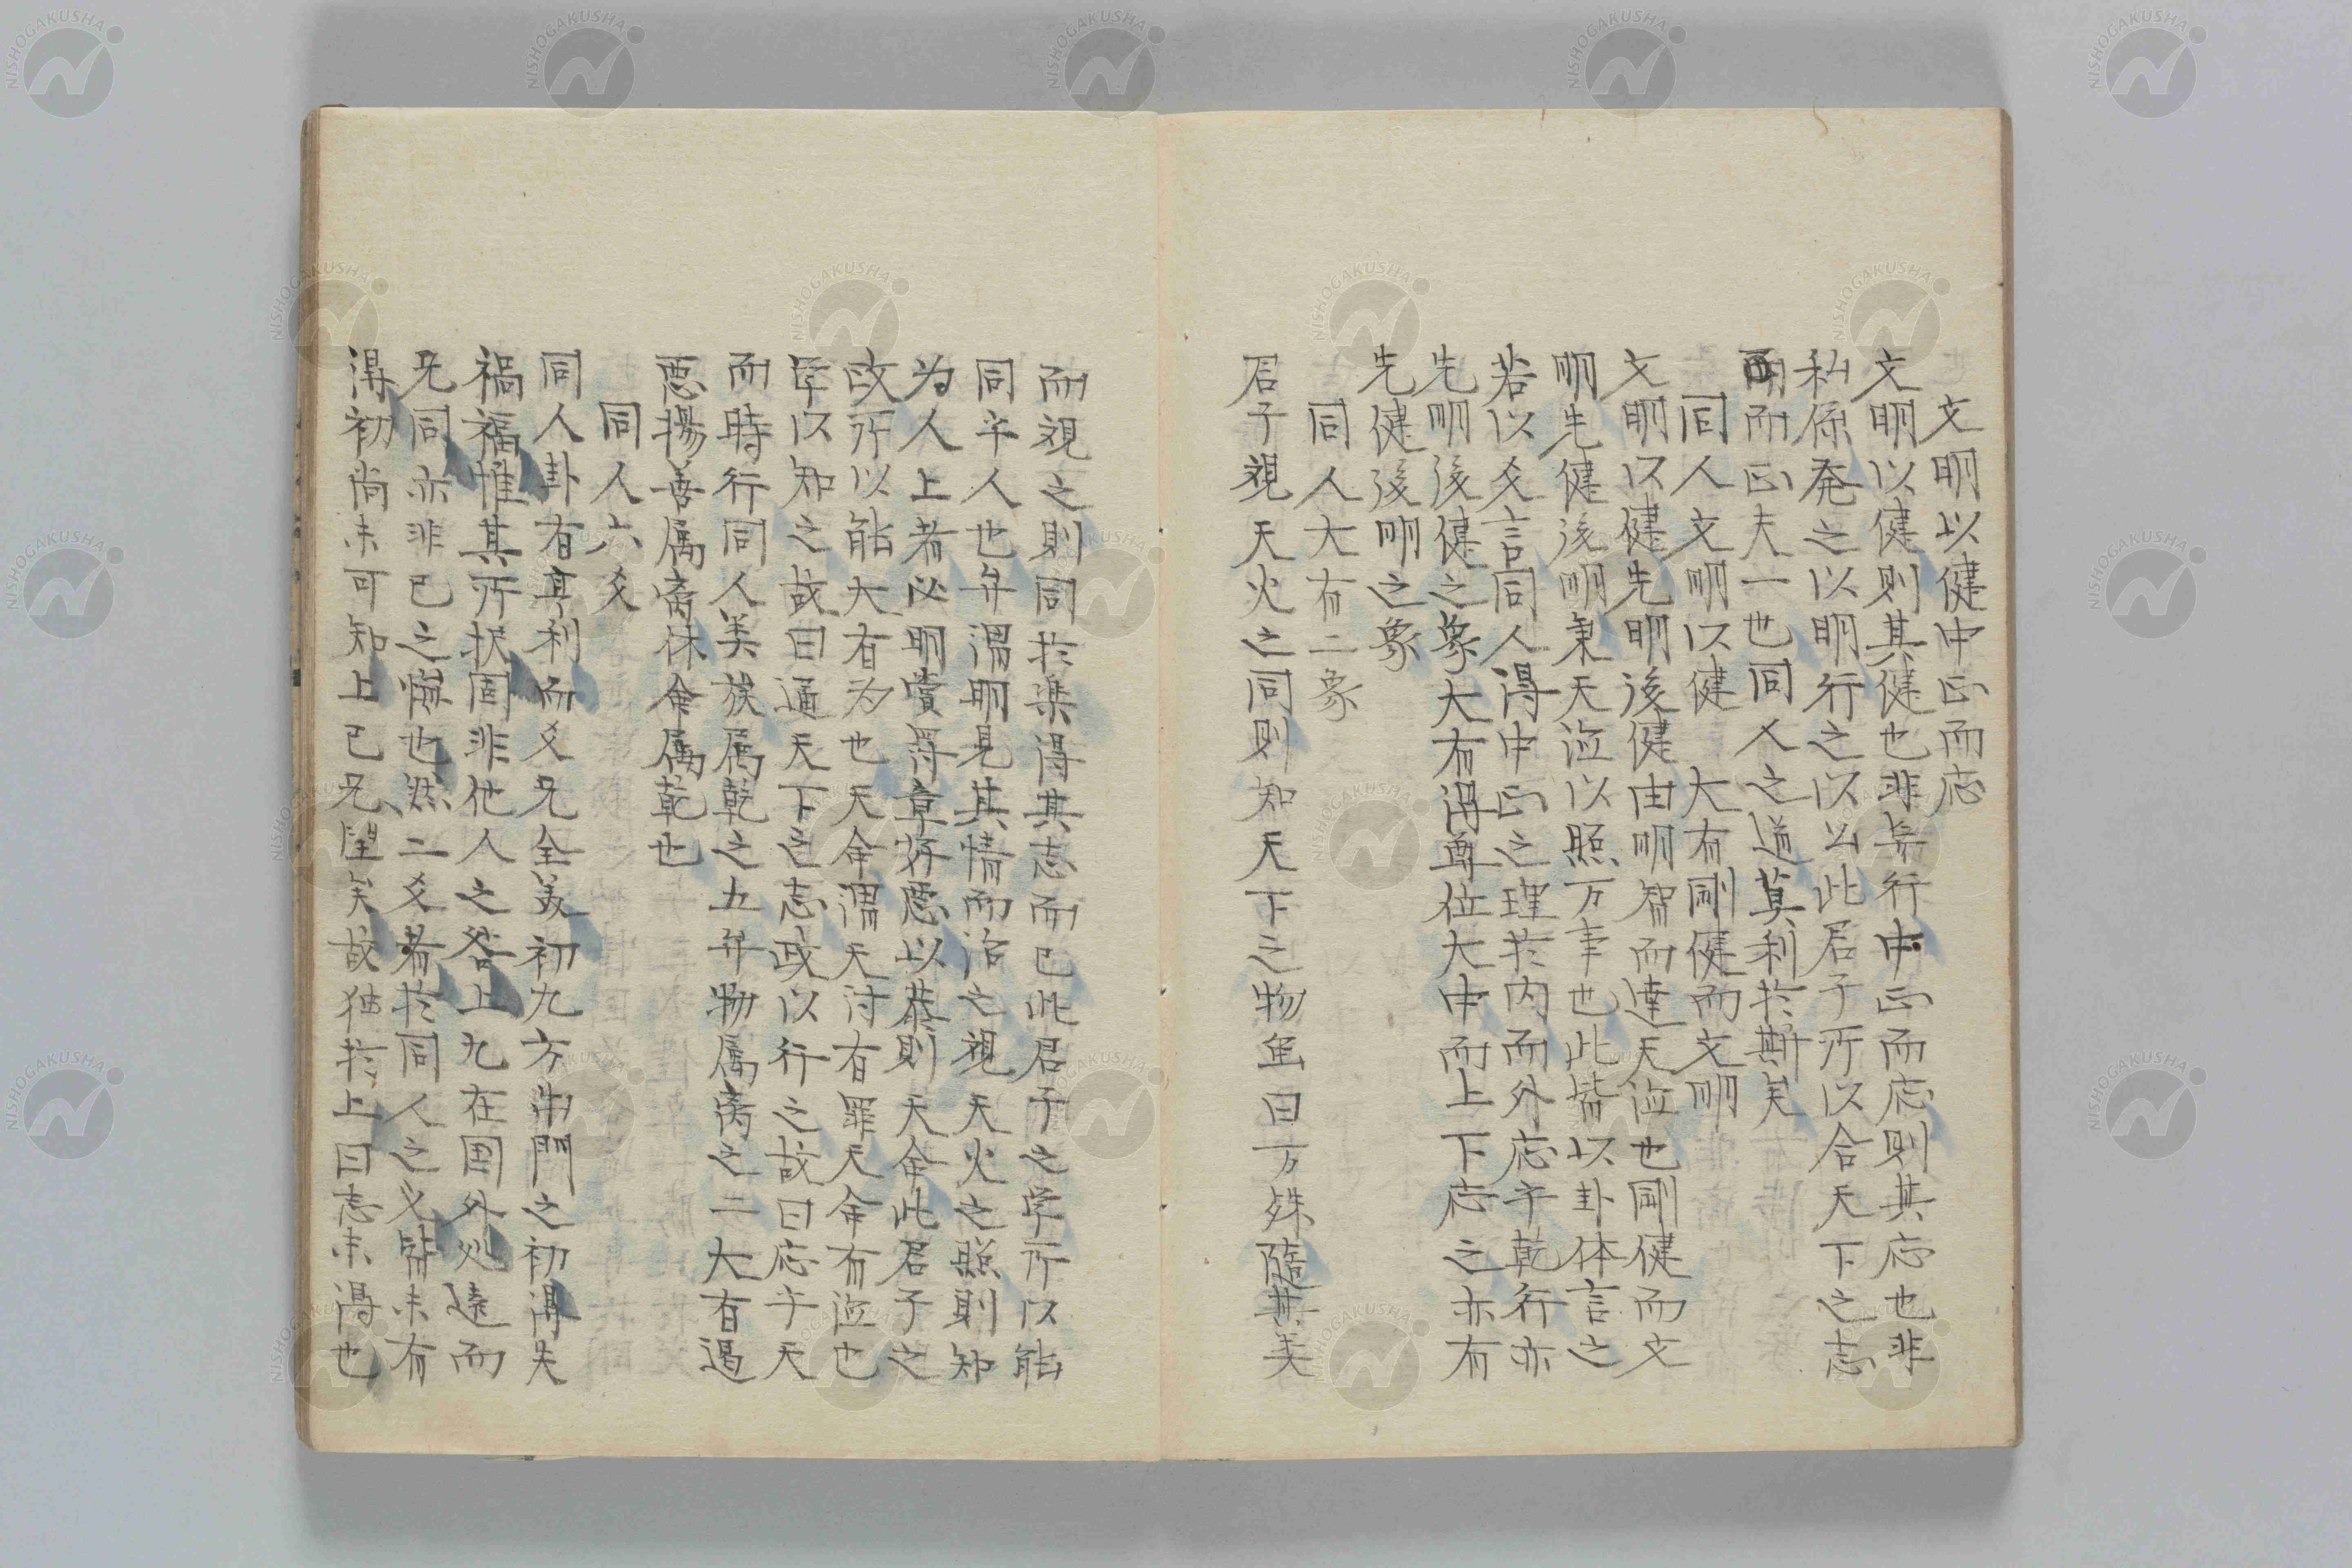 文明以健中正而応
文明以健則其健也非兵行中正而応則其応也非
私係発之以明行之以公此君子所以合天下之志
而正夫一也同人之道莫利於斯矣
同人文明以健　大有剛健而文明
文明以健先明後健由明智而達天泣也剛健而文
明先健後明秉天泣以照万事也此皆以卦体言之
若以爻言同人得中正之理於内而外応乎乾行亦
先明後健之象大有得尊位大中而上下応之亦有
先健後明之象
同人大有二象
君子視天火之同則知天下之物曰万殊随其美
而視之則同於楽得其志而已此君子之学所以能
同乎人也弁謂明見其情而治之視天火之照則知
為人上者必明賞罰章好悪以恭則天命此君子之
政所以能大有為也天命謂天討有罪天命有泣也
学以知之故曰通天下之志政以行之故曰応乎天
而時行同人美族属乾之五弁物属离之二大有遏
悪揚善属离休命属乾也
同人六爻
同人卦有亨利而爻无全美初九方出門之初得失
禍福惟其所択固非他人之咎上九在国外処遠而
无同亦非己之悔也然二爻者於同人之義皆未有
得初尚未可知上已无望矣故独於上曰志未得也